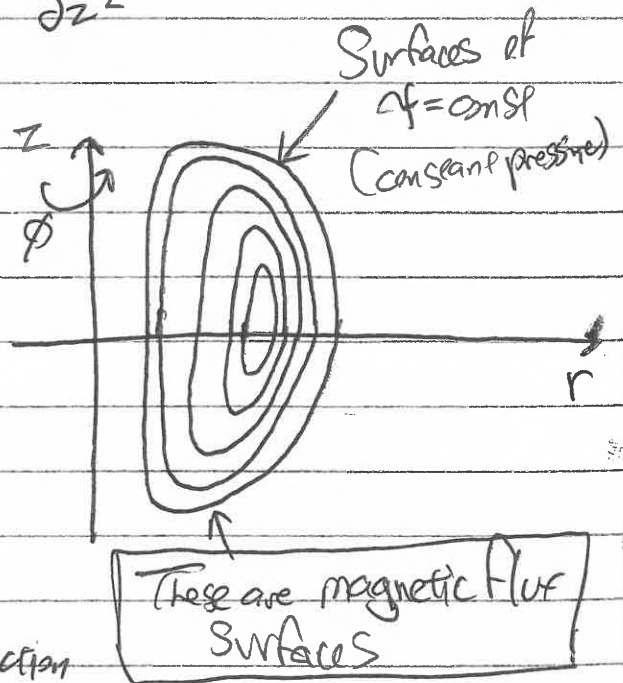 ∂z²
Surfaces of
ψ = const
(constant pressure)
z
φ
r
These are magnetic flux
Surfaces
ction